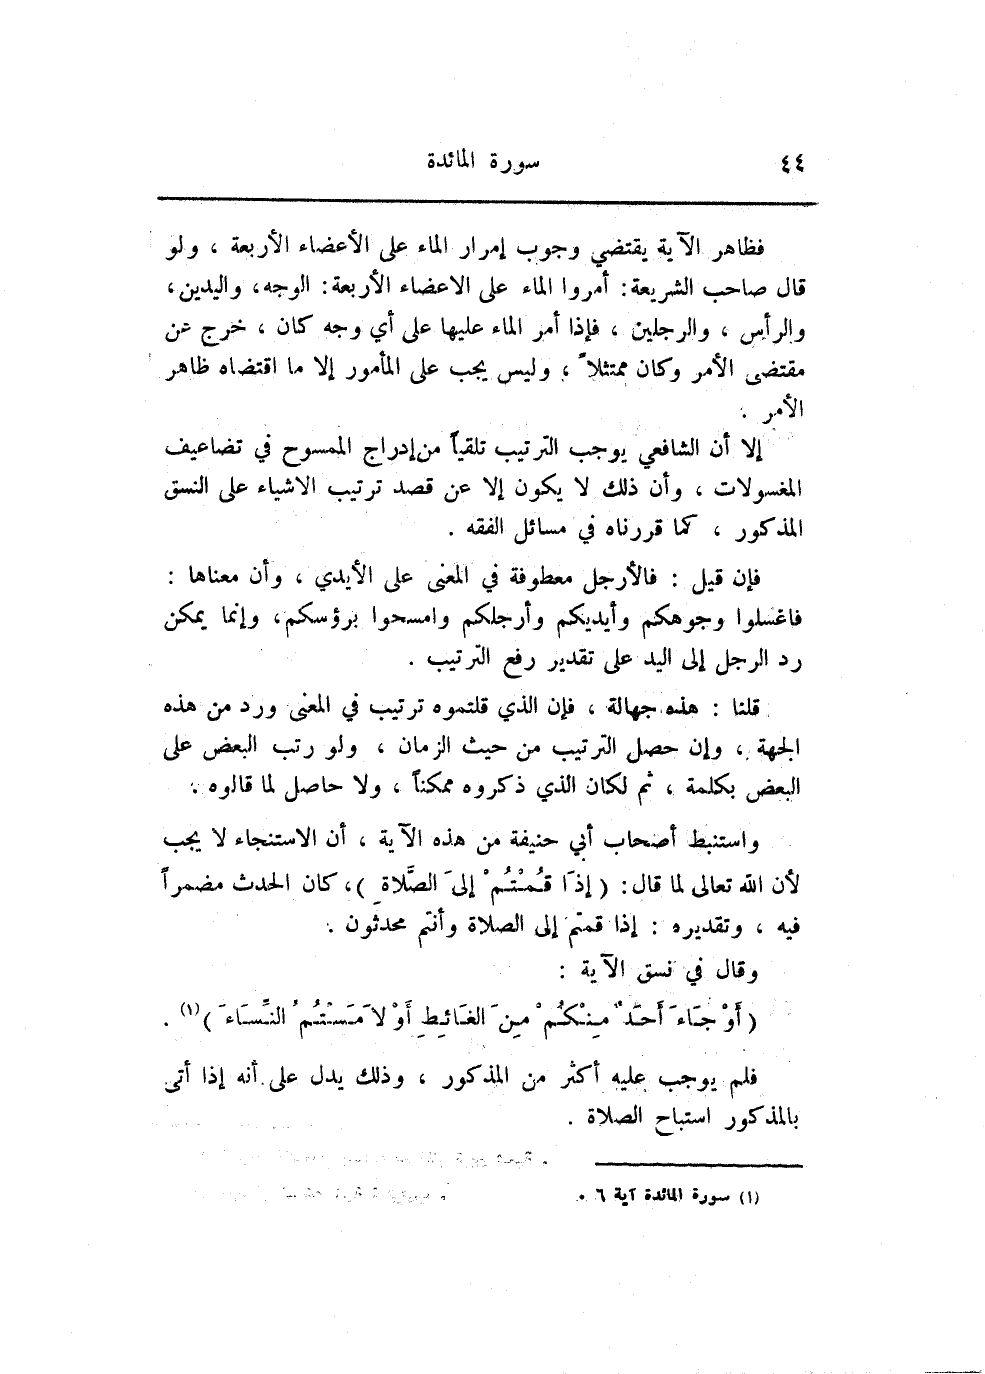 ٤٤
سورة المائدة
فظاهر الآية يقتضي وجوب إمرار الماء على الأعضاء الأربعة ، ولو
قال صاحب الشريعة: أمروا الماء على الاعضاء الأربعة: الوجه، واليدين،
والرأس ، والرجلين ، فإذا أمر الماء عليها على أي وجه كان ، خرج عن
مقتضى الأمر وكان ممتثلاً ، وليس يجب على المأمور إلا ما اقتضاه ظاهر
الأمر .
إلا أن الشافعي يوجب الترتيب تلقياً من إدراج الممسوح في تضاعيف
المغسولات ، وأن ذلك لا يكون إلا عن قصد ترتيب الاشياء على النسق
المذكور ، كما قررناه في مسائل الفقه .
فإن قيل : فالأرجل معطوفة في المعنى على الأيدي ، وأن معناها :
فاغسلوا وجوهكم وأيديكم وأرجلكم وامسحوا برؤسكم، وإنما يمكن
رد الرجل إلى اليد على تقدير رفع الترتيب .
قلنا : هذه جهالة ، فإن الذي قلتموه ترتيب في المعنى ورد من هذه
الجهة ، وإن حصل الترتيب من حيث الزمان ، ولو رتب البعض على
البعض بكلمة ، ثم لكان الذي ذكروه ممكناً ، ولا حاصل لما قالوه .
واستنبط أصحاب أبي حنيفة من هذه الآية ، أن الاستنجاء لا يجب
لأن الله تعالى لما قال: ( إذَا قُمْتُمْ إلىَ الصَّلاةِ )، كان الحدث مضمراً
فيه ، وتقديره : إذا قمتم إلى الصلاة وأنتم محدثون .
وقال في نسق الآية :
( أَوْ جَاءَ أَحَدٌ مِنْكُمْ مِنَ الغَائِطِ أَوْ لاَمَسْتُمُ النِّسَاءَ )(١) .
فلم يوجب عليه أكثر من المذكور ، وذلك يدل على أنه إذا أتى
بالمذكور استباح الصلاة .
(١) سورة المائدة آية ٦ .